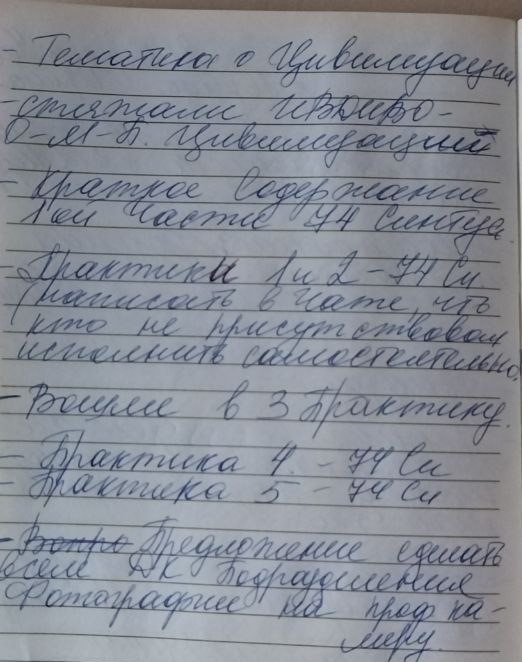 - Тематика о Цивилизации
- стяжали ИВДИВО-
О-М-П. Цивилизаций
- Краткое Содержание
1ой Части 74 Синтеза.
- Практики 1 и 2 - 74 Си.
(написать в Чате, что
кто не присутствовал
исполнить самостоятельно.
- Вошли в 3 Практику.
- Практика 4. - 74 Си
- Практика 5 - 74 Си
- Вопро Предложение сделать
всем ДК Подразделения
Фотографии на проф ка-
меру.